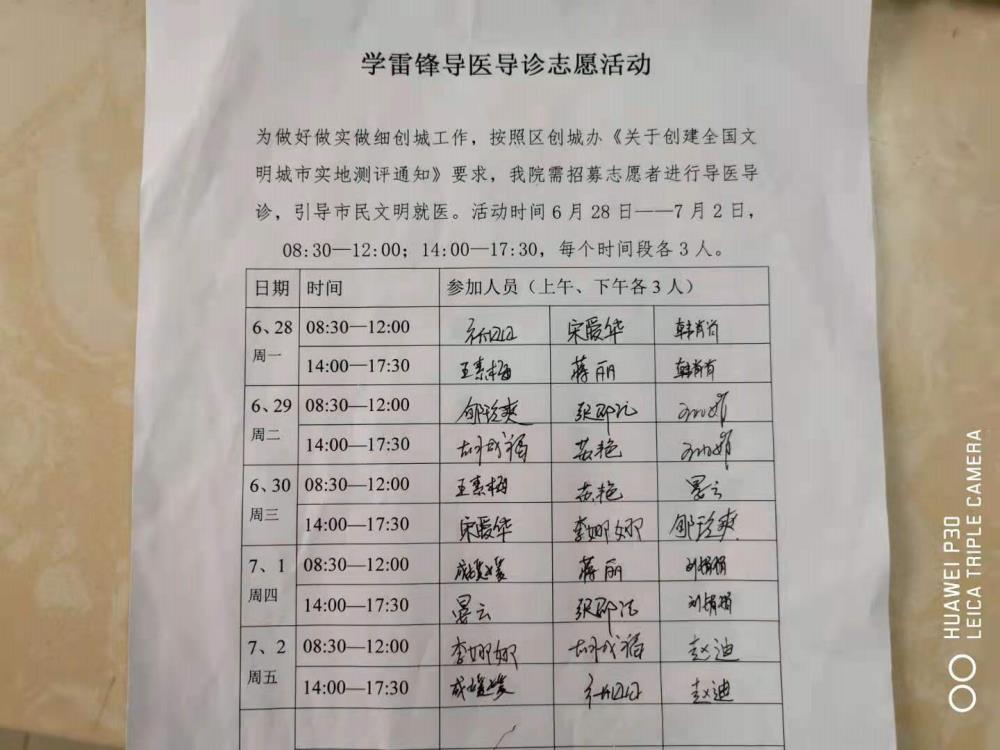 学雷锋导医导诊志愿活动
为做好做实做细创城工作，按照区创城办《关于创建全国文
明城市实地测评通知》要求，我院需招募志愿者进行导医导
诊，引导市民文明就医。活动时间6月28日——7月2日，
08:30—12:00；14:00—17:30，每个时间段各3人。
日期 时间 参加人员（上午、下午各3人）
6、28 08:30—12:00 宋爱华 韩肖肖
周一
14:00—17:30 王素梅 蒋丽 韩肖肖
6、29 08:30—12:00
周二
14:00—17:30 苏艳
6、30 08:30—12:00 王素梅 苏艳 晏云
周三
14:00—17:30 宋爱华 李娜娜
7、1 08:30—12:00 成媛媛 蒋丽 刘娟娟
周四
14:00—17:30 晏云 刘娟娟
7、2 08:30—12:00 李娜娜 赵迪
周五
14:00—17:30 成媛媛 赵迪
HUAWEI P30
LEICA TRIPLE CAMERA